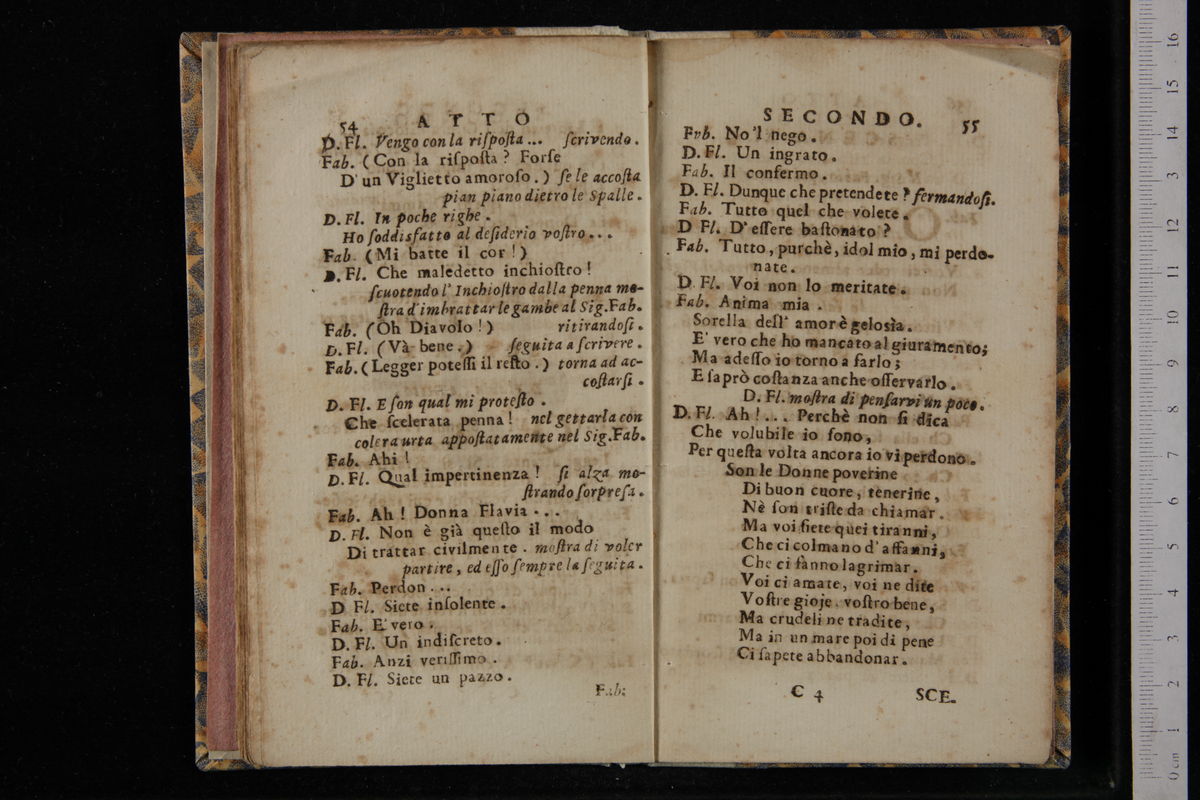 54 ATTO
D. Fl. Vengo con la riſpoſta ... ſcrivendo.
Fab. (Con la riſpoſta? Forſe
D'un Viglietto amoroſo.) ſe le accoſta
pian piano dietro le Spalle.
D. Fl. In poche righe.
Ho ſoddisfatto al deſiderio voſtro...
Fab. (Mi batte il cor!)
D. Fl. Che maledetto inchioſtro!
ſcuotendo l'Inchioſtro dalla penna mo-
ſtra d'imbrattar le gambe al Sig. Fab.
Fab. (Oh Diavolo!) ritirandoſi.
D. Fl. (Và bene.) ſeguita a ſcrivere.
Fab. (Legger poteſſi il reſto.) torna ad ac-
coſtarſi.
D. Fl. E ſon qual mi proteſto.
Che ſcelerata penna! nel gettarla con
colera urta appoſtatamente nel Sig. Fab.
Fab. Ahi!
D. Fl. Qual impertinenza! ſi alza mo-
ſtrando ſorpreſa.
Fab. Ah! Donna Flavia ...
D. Fl. Non è già queſto il modo
Di trattar civilmente. moſtra di voler
partire, ed eſſo ſempre la ſeguita.
Fab. Perdon ...
D Fl. Siete inſolente.
Fab. E' vero.
D. Fl. Un indiſcreto.
Fab. Anzi veriſſimo.
D. Fl. Siete un pazzo.
Fab:
SECONDO. 55
Fvb. No'l nego.
D. Fl. Un ingrato.
Fab. Il confermo.
D. Fl. Dunque che pretendete? fermandoſi.
Fab. Tutto quel che volete.
D Fl. D'eſſere baſtonato?
Fab. Tutto, purchè, idol mio, mi perdo-
nate.
D. Fl. Voi non lo meritate.
Fab. Anima mia.
Sorella dell' amor è geloſìa.
E' vero che ho mancato al giuramento;
Ma adeſſo io torno a farlo;
E ſaprò coſtanza anche oſſervarlo.
D. Fl. moſtra di penſarvi un poco.
D. Fl. Ah! ... Perchè non ſi dica
Che volubile io ſono,
Per queſta volta ancora io vi perdono.
Son le Donne poverine
Di buon cuore, tenerine,
Nè ſon triſte da chiamar.
Ma voi ſiete quei tiranni,
Che ci colmano d'affanni,
Che ci fanno lagrimar.
Voi ci amate, voi ne dite
Voſtre gioje, voſtro bene,
Ma crudeli ne tradite,
Ma in un mare poi di pene
Ci ſapete abbandonar.
C 4 SCE.
0 cm 1 2 3 4 5 6 7 8 9 10 11 12 13 14 15 16